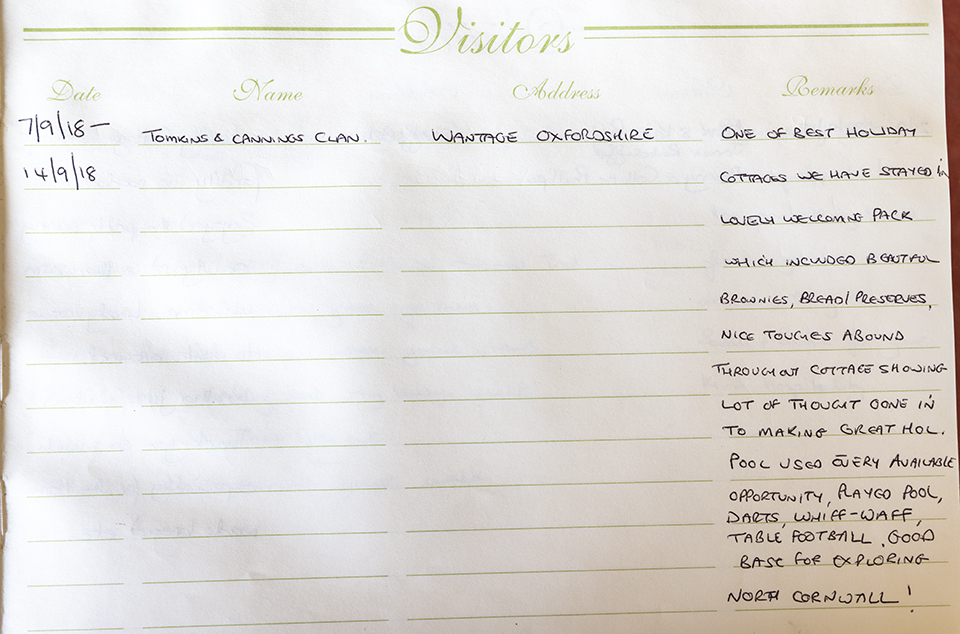 Visitors
Date Name Address Remarks
7/9/18 — TOMKINS & CANNINGS CLAN. WANTAGE OXFORDSHIRE ONE OF BEST HOLIDAY
14/9/18 COTTAGES WE HAVE STAYED in
LOVELY WELCOMING PACK
WHICH INCLUDED BEAUTFUL
BROWNIES, BREAD/PRESERVES,
NICE TOUCHES ABOUND
THROUGHOUT COTTAGE SHOWING
LOT OF THOUGHT GONE IN
TO MAKING GREAT HOL.
POOL USED EVERY AVAILABLE
OPPORTUNITY, PLAYED POOL,
DARTS, WHIFF-WAFF,
TABLE FOOTBALL. GOOD
BASE FOR EXPLORING
NORTH CORNWALL!